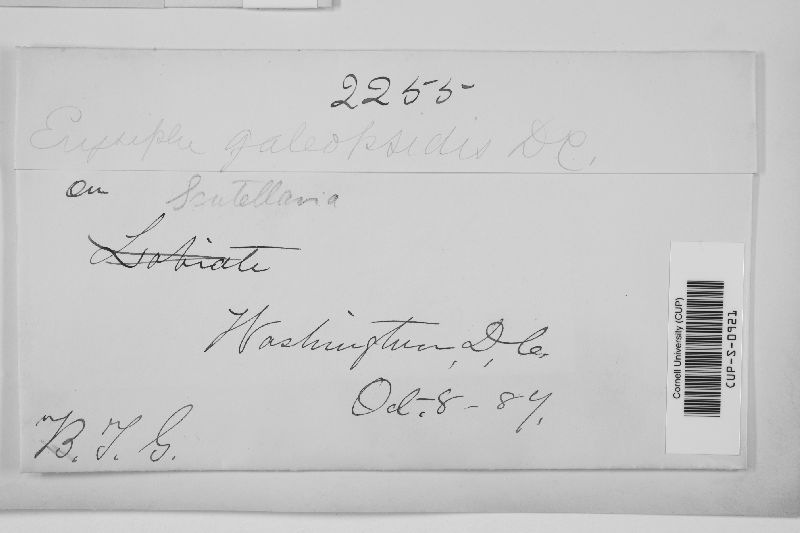 2255
Erysiphe galeopsidis DC.
on Scutellaria
Labiate
Washington, D.C.
Oct. 8 - 87.
B. T. G.
Cornell University (CUP)
CUP-S-0921